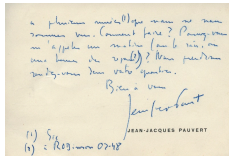 a plusieurs années(1) que nous ne nous
sommes vus. Comment faire ? Pouvez-vous
m'appeler un matin (sur le soir, ou
une heure de repas(2)) ? Nous prendrons
rendez-vous dans votre quartier.
Bien à vous
JEAN-JACQUES PAUVERT
(1) Sic
(2) à